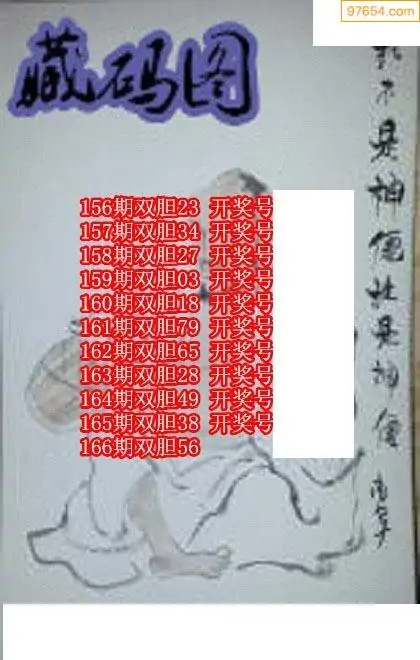 97654.com
藏码图
156期双胆23 开奖号
157期双胆34 开奖号
158期双胆27 开奖号
159期双胆03 开奖号
160期双胆18 开奖号
161期双胆79 开奖号
162期双胆65 开奖号
163期双胆28 开奖号
164期双胆49 开奖号
165期双胆38 开奖号
166期双胆56
不是神仙胜是神仙